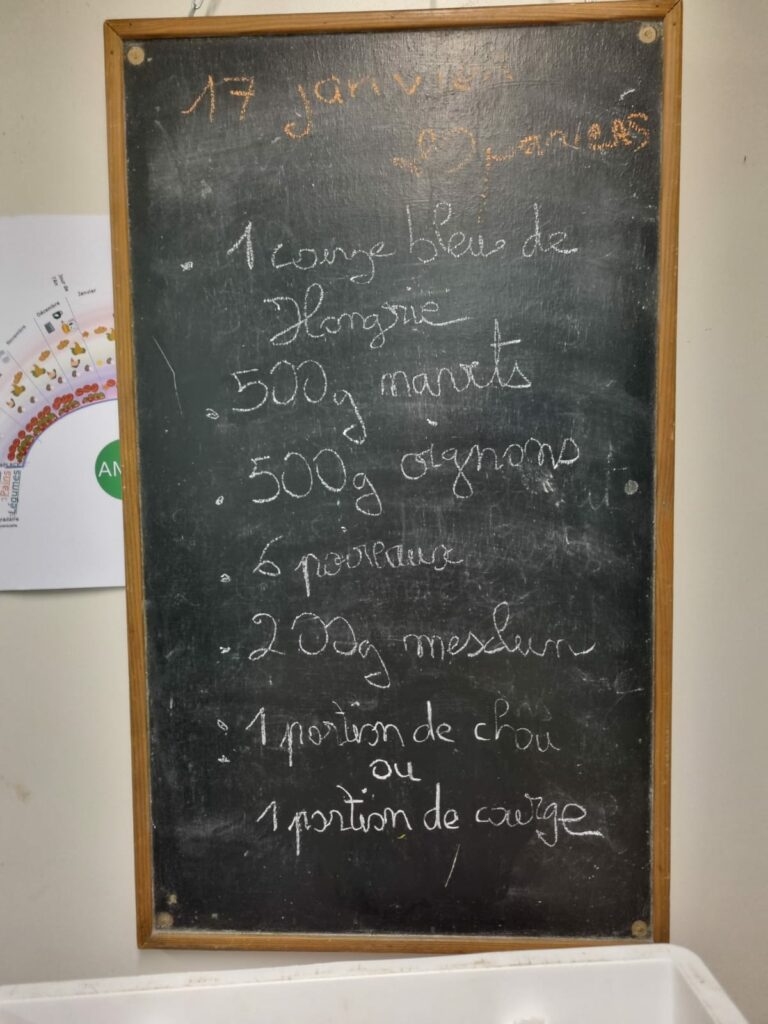 17 janvier
paniers
. 1 courge bleu de
Hongrie
. 500g navets
. 500g oignons
. 6 poireaux
. 200g mesclun
: 1 portion de chou
ou
1 portion de courge
Novembre
Décembre
Janvier
Jour de l'an
AM
Pains
Légumes